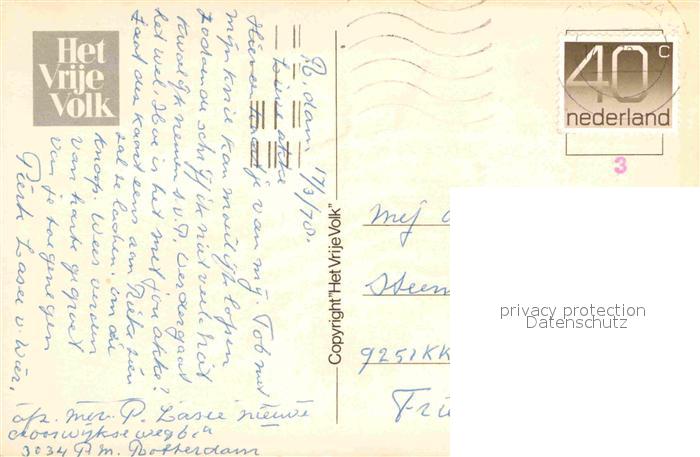 Het
Vrije
Volk
R.dam 17/3/78.
Lieve akke
Hier een kaartje van mij. Tob met
mijn knie kan moeilijk lopen
zodoende schrijf ik niet veel hoor
Kwalijk nemen s.v.P. Verder gaat
het wel. Hoe is het met jou akke?
Laat deze kaart eens aan Rieke zien
zal ze lachen. om die
knop. Wees verder
van harte gegroet
van je toegenegen
Piets Lasee v. Wier,
afz. mev. P. Lasee nieuwe
crooswijkseweg
3034 P.M. Rotterdam
Copyright "Het Vrije Volk"
40 c
nederland
3
Mej
Steen
9251KK
Frie
privacy protection
Datenschutz